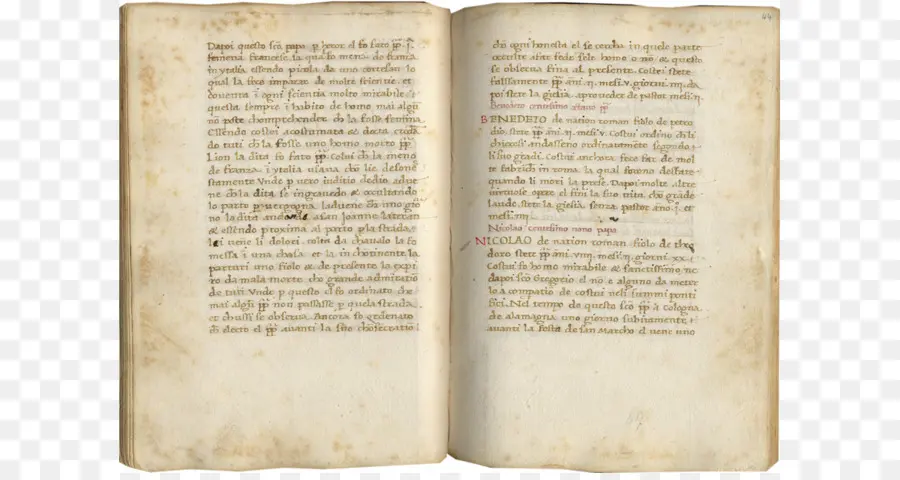 Dapoi questo sco papa p error el fo fato pp. j.
femena francese. la qual fo mena do franza
in ytalia essendo picola da uno cortesan lo
qual la fece imparar de molte scientie. et
doventa i ogni scientia molto mirabile et
questa sempre i habito de homo mai algun
no pote chomprehender ch la fosse femina
Essendo costei acostumata et docta creda
do tuti ch la fosse uno homo morto pp.
Lion la dita fo fato pp. Colui ch la meno
de franza i ytalia usava chon lie desone
stamente Unde p vero iuditio dedio adve
ne ch la dita se ingravedo et ocultando
lo parto p vergogna. laduene ch uno giorno
no la dita andando a san Joanne lateran
et essendo proxima al parto p la strada.
lei vene li dolori. tolta da chavalo la fo
messa i una chasa. et la in chotinente la
parturi uno fiolo et de presente la expi
ro da mala morte cho grande admiratio
de tuti. Unde p questo el fo ordinato che
mai algun pp. non passasse p quela strada.
et chussi se observa. Ancora fo ordenato
ch electo el pp. avanti la suo
44
ch ogni honesta el se cercha in quele parte
oculte asite fede sel e homo o no. et questo
se observa fina al presente. Costei stete
falssamente pp. ani .ij. mesi .v. giorni .iiij. da
poi stete la giesia aproveder de pastor mesi .ij.
Benedeto centesimo otavo pp.
BENEDETO de nation roman fiolo de petro
dio. stete pp. ani .ij. mesi .v. Costui ordino ch li
chierissi andasseno ordinatamente segondo i
li suo gradi. Costui anchora fece far de mol
te fabriche in roma. la qual forono desfate
quando li mori la prese. Dapoi molte altre
virtuose opere el fini la suo vita. cho grade
laude. stete la giesia senza pastor ano .j. et
mesi .iiij.
Nicolao centesimo nono papa.
NICOLAO de nation roman fiolo de theo
doro stete pp. ani .viiij. mesi .ij. giorni .xx.
Costui fo homo mirabile et sanctissimo ne
dapoi sco Gregorio el no e alguno da meter
la a compatio de costui neli summi ponti
fici. Nel tempo da questo sco pp. a cologna
de alamagna uno giorno subitamente
avanti la festa de san Marcho el vene uno